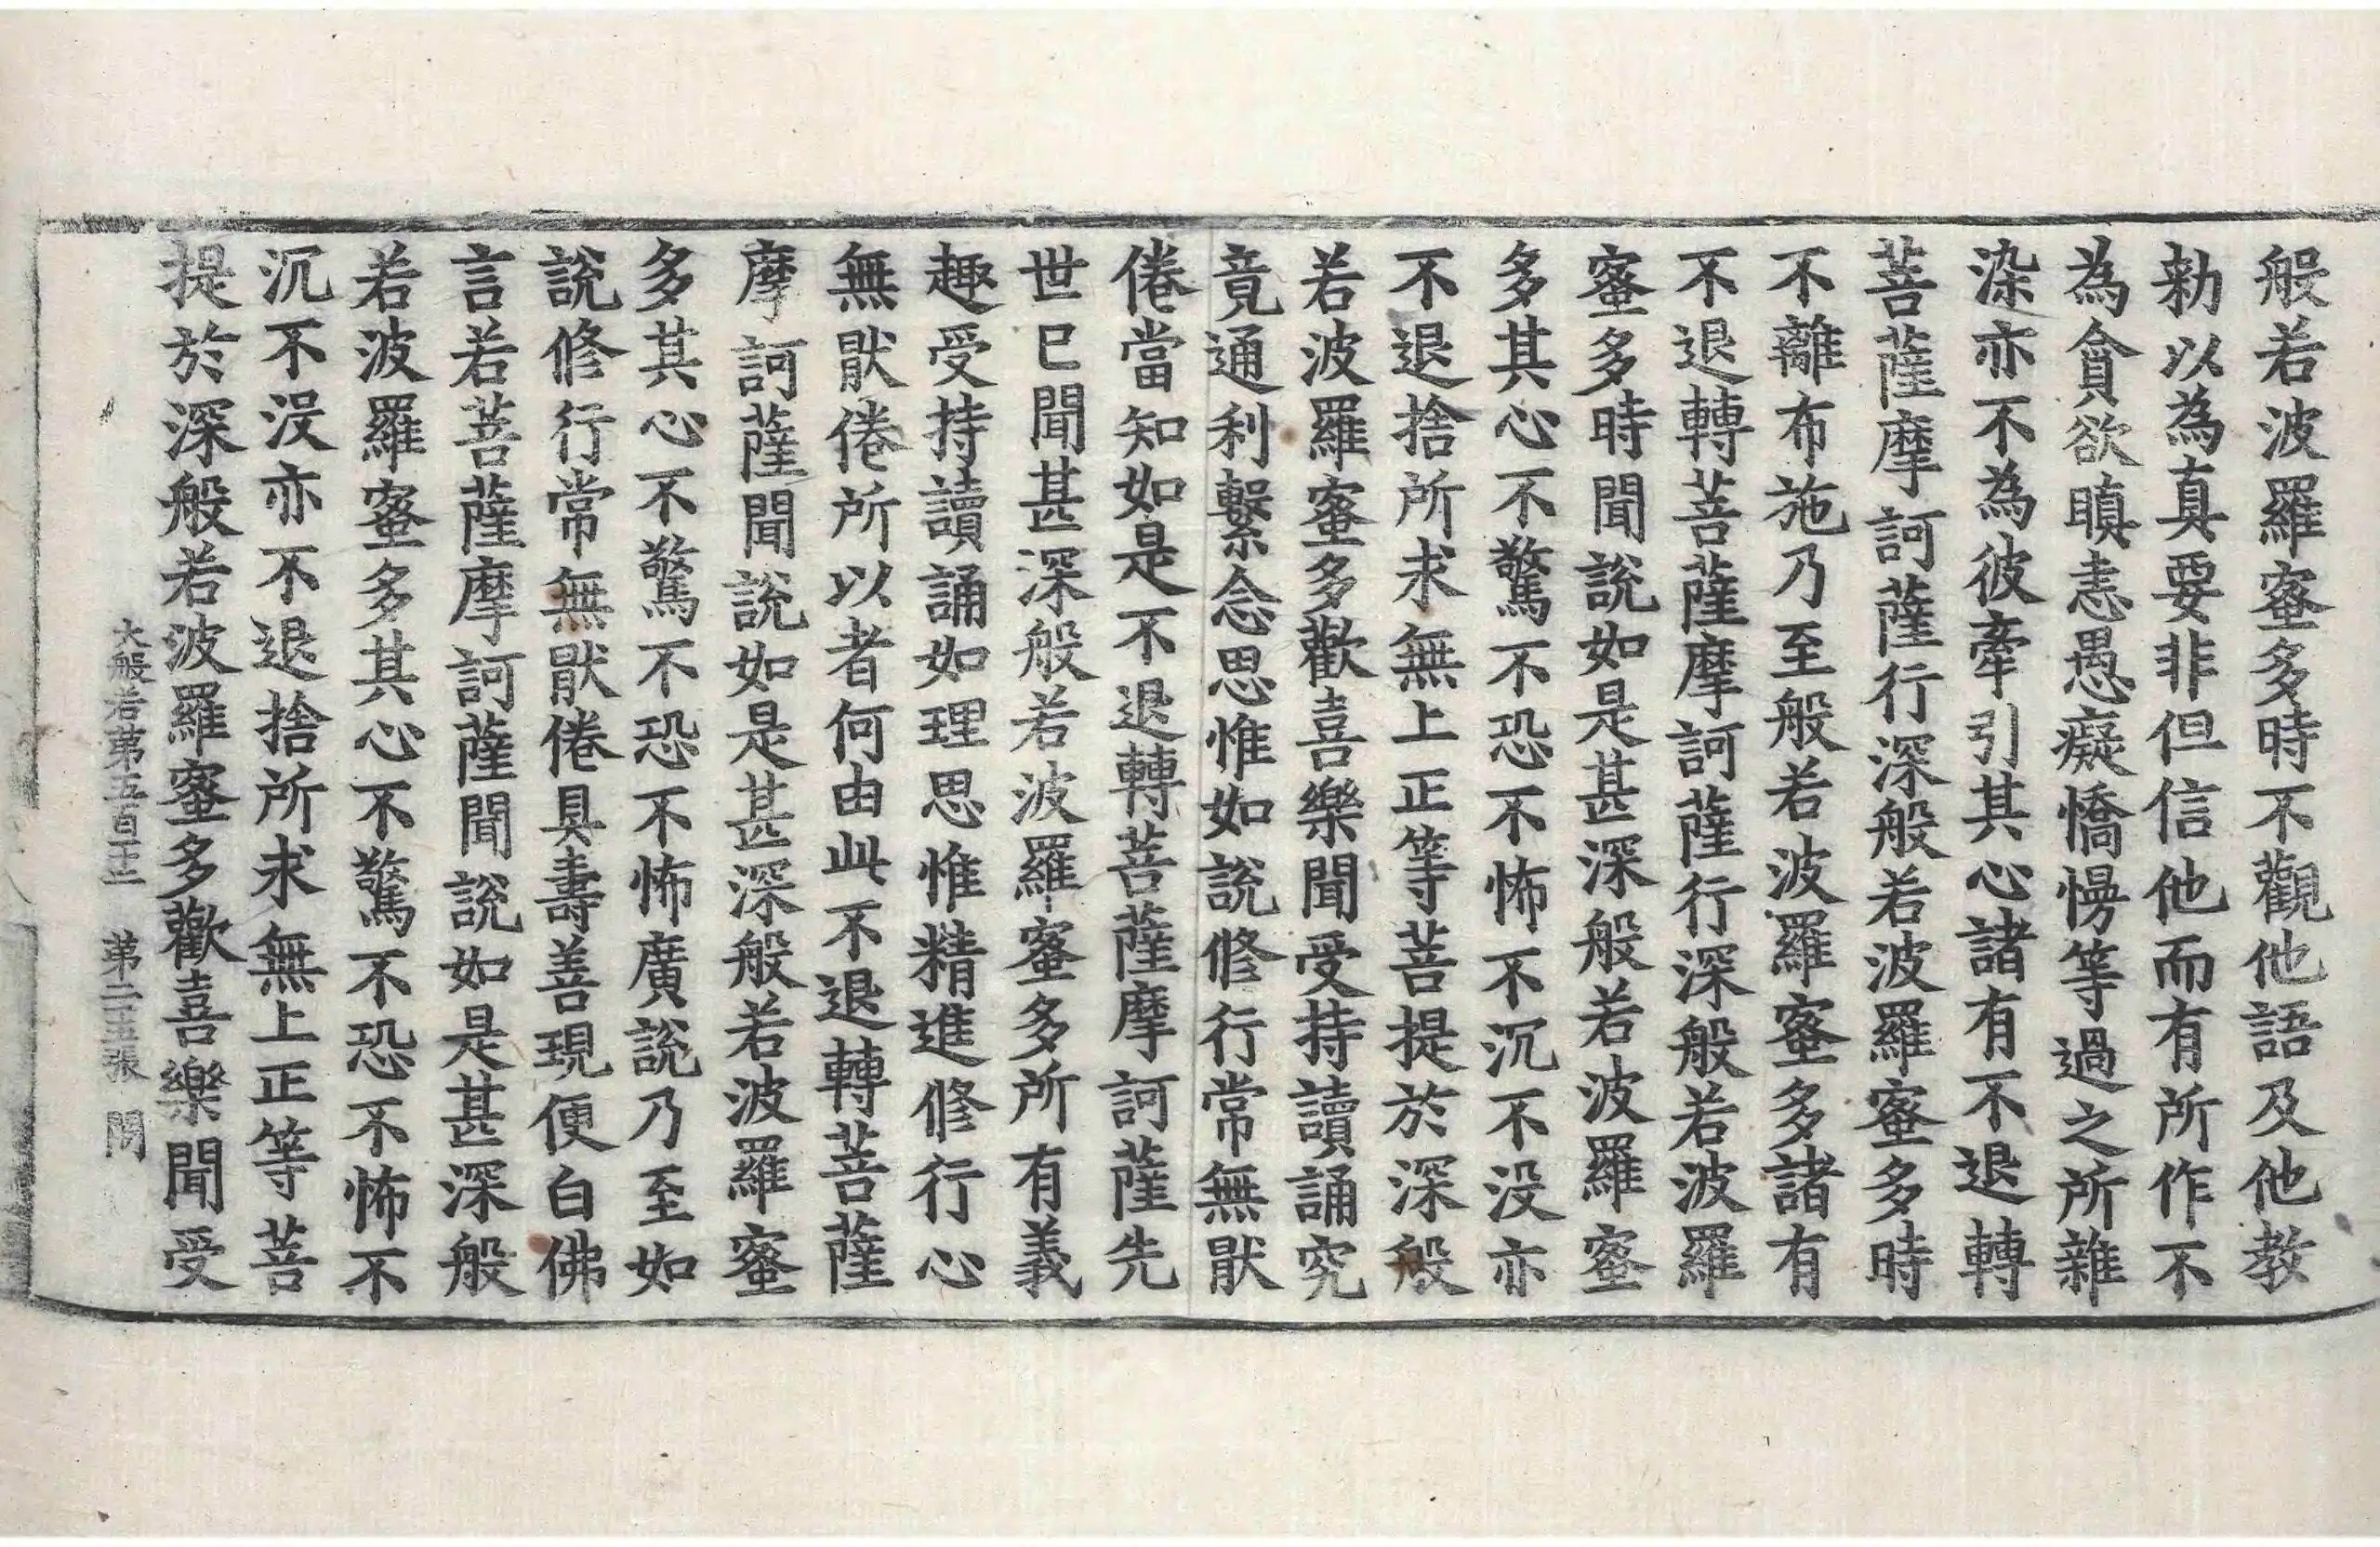 般若波羅蜜多時不觀他語及他教
勑以為真要非但信他而有所作不
為貪欲瞋恚愚癡憍慢等過之所雜
染亦不為彼牽引其心諸有不退轉
菩薩摩訶薩行深般若波羅蜜多時
不離布施乃至般若波羅蜜多諸有
不退轉菩薩摩訶薩行深般若波羅
蜜多時聞說如是甚深般若波羅蜜
多其心不驚不恐不怖不沉不没亦
不退捨所求無上正等菩提於深般
若波羅蜜多歡喜樂聞受持讀誦究
竟通利繫念思惟如說修行常無猒
倦當知如是不退轉菩薩摩訶薩先
世已聞甚深般若波羅蜜多所有義
趣受持讀誦如理思惟精進修行心
無猒倦所以者何由此不退轉菩薩
摩訶薩聞說如是甚深般若波羅蜜
多其心不驚不恐不怖廣說乃至如
說修行常無猒倦具壽善現便白佛
言若菩薩摩訶薩聞說如是甚深般
若波羅蜜多其心不驚不恐不怖不
沉不没亦不退捨所求無上正等菩
提於深般若波羅蜜多歡喜樂聞受
大般若第五百二十三 第二十五張